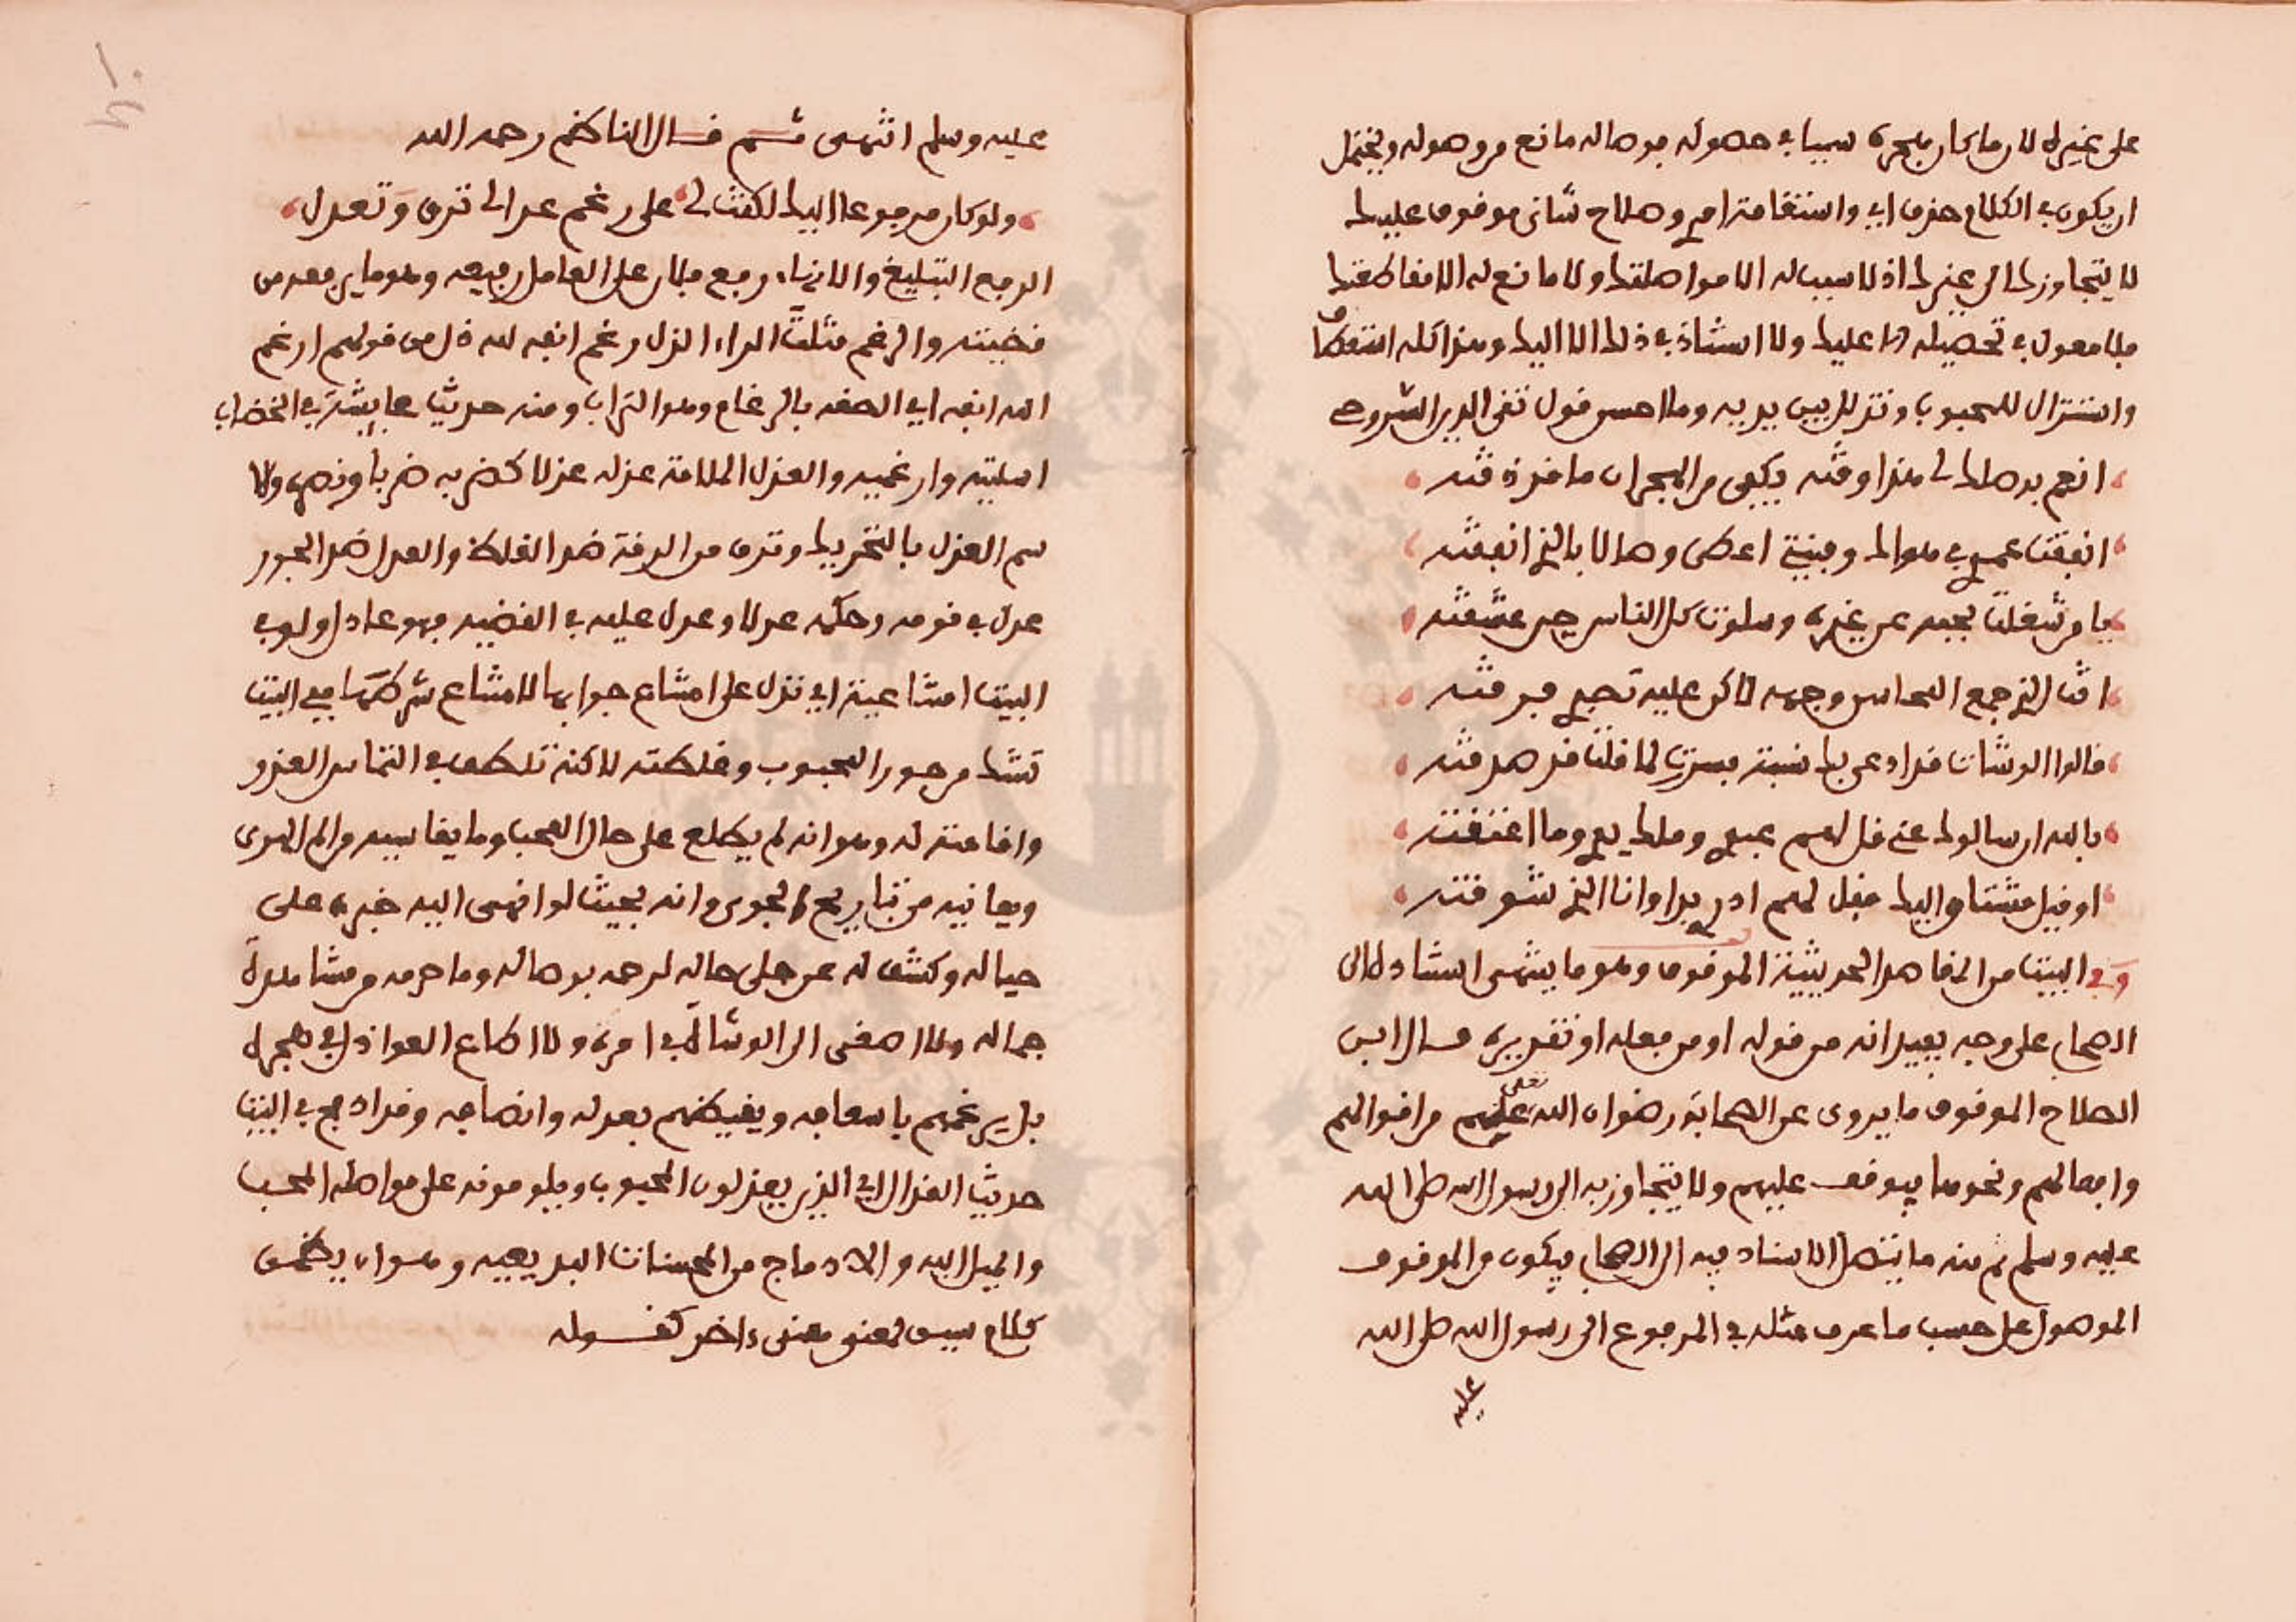 على غيره لان ما كان هجره سببا في حصوله فوصاله مانع من وصوله ويحتمل
ان يكون في الكلام حذف اي واستقامة امري وصلاح شاني موقوف عليك
لا يتجاوزك الى غيرك اذ لا سبب له الا مواصلتك ولا مانع له الا مقاطعتك
فلا معول في تحصيله الا عليك ولا استناد في ذلك الا اليك وهذا كله استعطاف
واستنزال للمحبوب وتذلل بين يديه وما احسن قول تقي الدين السروجي
انعم بوصلك لي فهذا وقته يكفي من الهجران ما قد ذقته
انفقت عمري في هواك وليتني اعطى وصالا بالذي انفقته
يا من شغلت بحبه عن غيره وسلوت كل الناس حين عشقته
انت الذي جمع المحاسن وجهه لاكن عليه تصبري فرقته
قالوا الوشات قد ادعى بك نسبة فسررت لما قلت قد صدقته
بالله ان سالوك عني قل لهم عبدي وملك يدي وما اعتقته
او قيل مشتاق اليك فقل لهم ادري بذا وانا الذي شوقته
وفي البيت من المقاصد الحديثية الموقوف وهو ما ينتهي اسناده الى
الصحابي على وجه يفيد انه من قوله او من فعله او تقريره قال ابن
الصلاح الموقوف ما يروى عن الصحابة رضوان الله تعلى عليهم من اقوالهم
وافعالهم ونحوها فيوقف عليهم ولا يتجاوز به الى رسول الله صلى الله
عليه وسلم ثم منه ما يتصل الاسناد فيه الى الصحابي فيكون من الموقوف
الموصول على حسب ما عرف مثله في المرفوع الى رسول الله صلى الله
عليه
عليه وسلم انتهى ثم قال الناظم رحمه الله
ولو كان مرفوعا اليك لكنت لي على رغم عذالي ترق وتعدل
الرفع التبليغ والانهاء رفع فلان على العامل رفيعه وهو ما يرفعه من
قضيته والرغم مثلث الراء الذل رغم انفه لله ذل من قولهم ارغم
الله انفه اي الصقه بالرغام وهو التراب ومنه حديث عايشة في الخضاب
اسلتيه وارغميه والعذل الملامة عذله عذلا كضربه ضربا ونصره والا
سم العذل بالتحريك وترق من الرقة ضد الغلظة والعدل ضد الجور
عدل في قومه وحكمه عدلا وعدل عليه في القضيه فهو عادل ولو في
البيت امتناعية اي تدل على امتناع جوابها لامتناع شرطها ففي البيت
تشك من جور المحبوب وغلظته لاكنه تلطف في التماس العذر
واقامته له وهو انه لم يطلع على حال المحب وما يقاسيه من الم الهوى
ويعانيه من تباريح الجوى وانه بحيث لو انهى اليه خبره على
حياله وكشف له عن جلى حاله لرحمه بوصاله وما حرمه من مشاهدة
جماله ولا اصغى الى الوشاة في امره ولا اطاع العواذل في هجره
بل يرغمهم باسعافه ويغيظهم بعدله وانصافه وقد ادمج في البيت
حديث العذال اي الذين يعذلون المحبوب ويلومونه على مواصلة المحب
والميل اليه والادماج من المحسنات البديعيه وهو ان يضمن
كلام سيق لمعنى معنى ءاخر كقوله